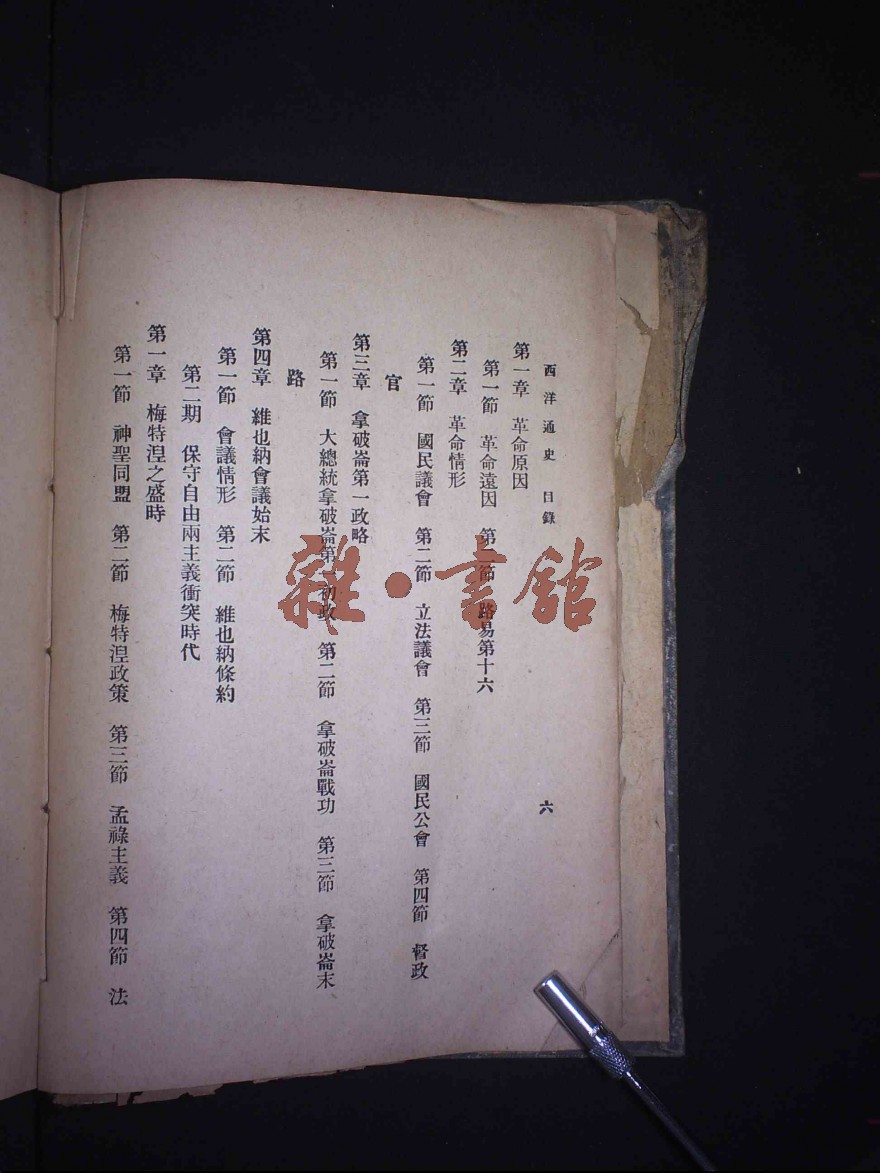 西洋通史 目錄 六
第一章 革命原因
第一節 革命遠因 第二節 路易第十六
第二章 革命情形
第一節 國民議會 第二節 立法議會 第三節 國民公會 第四節 督政
官
第三章 拿破崙第一政略
第一節 大總統拿破崙第一初政 第二節 拿破崙戰功 第三節 拿破崙末
路
第四章 維也納會議始末
第一節 會議情形 第二節 維也納條約
第二期 保守自由兩主義衝突時代
第一章 梅特湼之盛時
第一節 神聖同盟 第二節 梅特湼政策 第三節 孟祿主義 第四節 法
雜·書館